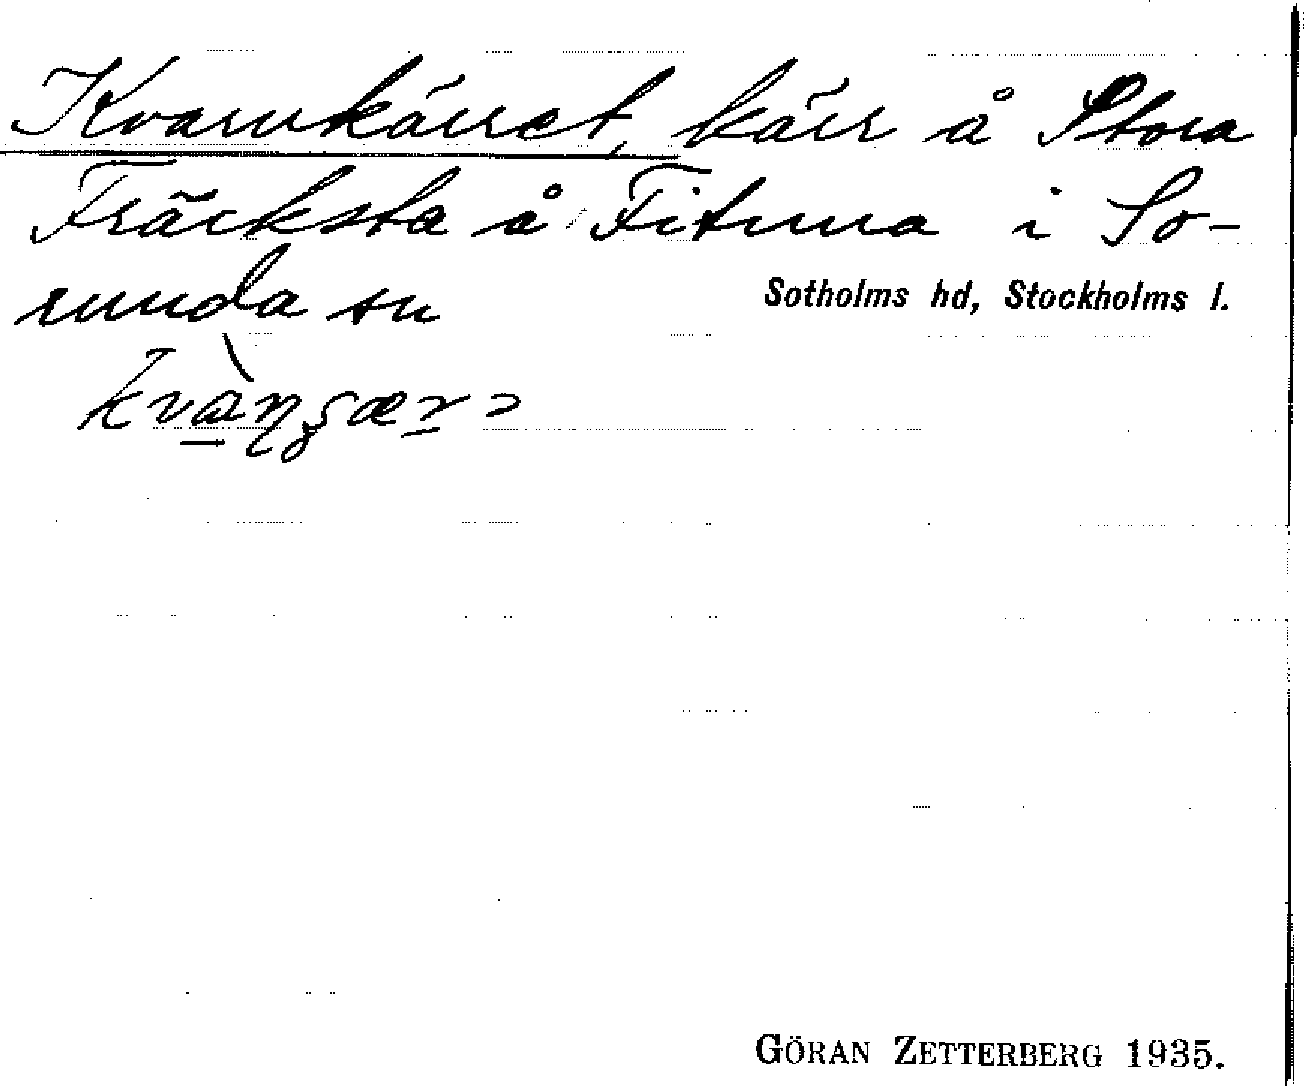 Kvarnkärret, kärr å Stora
Fräcksta å Fituna i So-
runda sn
Sotholms hd, Stockholms l.
GÖRAN ZETTERBERG 1935.